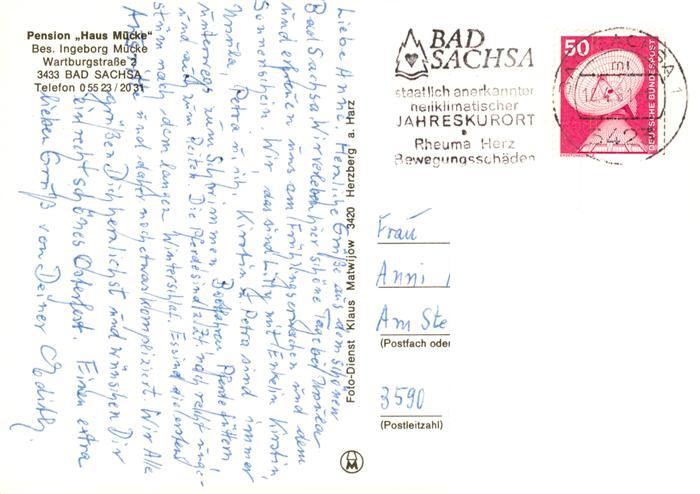 Pension „Haus Mücke"
Bes. Ingeborg Mücke
Wartburgstraße 2
3433 BAD SACHSA
Telefon 0 55 23 / 20 31
Liebe Anni! Herzliche Grüße aus dem schönen
Bad Sachsa. Wir verleben hier schöne Tage bei Monika
und erfreuen uns am Frühlingserwachen und dem
Sonnenschein. Wir, das sind Lutz mit Enkelin Kirstin,
Monika, Petra u. ich. Kirstin u. Petra sind immer
unterwegs zum Schwimmen, Bootfahren, Pferde füttern
und auch zum Reiten. Die Pferde sind z. Zt. noch recht unge-
stüm nach dem langen Winterschlaf. Es sind die ersten
und daher noch etwas kompliziert. Wir Alle
grüßen Dich herzlichst und wünschen Dir
ein recht schönes Osterfest. Einen extra
lieben Gruß von Deiner Edith.
Foto-Dienst Klaus Matwijow 3420 Herzberg a. Harz
M
BAD
SACHSA
staatlich anerkannter
heilklimatischer
JAHRESKURORT
Rheuma Herz
Bewegungsschäden
50
DEUTSCHE BUNDESPOST
SACHSA 1
Frau
Anni
Am Ste
(Postfach oder
3590
(Postleitzahl)